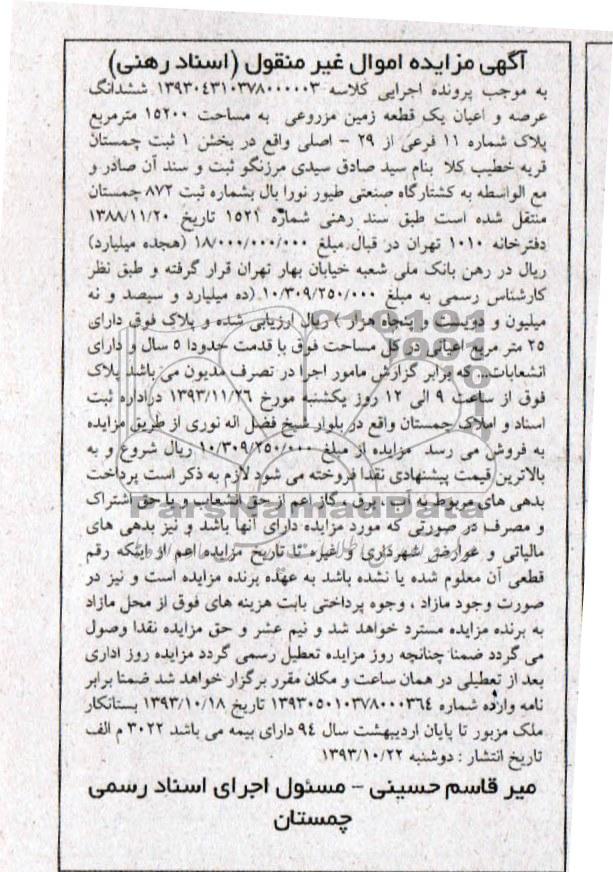 آگهی مزایده اموال غیر منقول (اسناد رهنی)
به موجب پرونده اجرایی کلاسه ۱۳۹۳۰۴۳۱۰۳۷۸۰۰۰۰۰۳ ششدانگ
عرصه و اعیان یک قطعه زمین مزروعی به مساحت ۱۵۲۰۰ مترمربع
پلاک شماره ۱۱ فرعی از ۲۹ – اصلی واقع در بخش ۱ ثبت چمستان
قریه خطیب کلا بنام سید صادق سیدی مرزنگو ثبت و سند آن صادر و
مع الواسطه به کشتارگاه صنعتی طیور نورا بال بشماره ثبت ۸۷۲ چمستان
منتقل شده است طبق سند رهنی شماره ۱۵۲۱ تاریخ ۱۳۸۸/۱۱/۲۰
دفترخانه ۱۰۱۰ تهران در قبال مبلغ ۱۸/۰۰۰/۰۰۰/۰۰۰ (هجده میلیارد)
ریال در رهن بانک ملی شعبه خیابان بهار تهران قرار گرفته و طبق نظر
کارشناس رسمی به مبلغ ۱۰/۳۰۹/۲۵۰/۰۰۰ (ده میلیارد و سیصد و نه
میلیون و دویست و پنجاه هزار ) ریال ارزیابی شده و پلاک فوق دارای
۲۵ متر مربع اعیانی در کل مساحت فوق با قدمت حدودا ۵ سال و دارای
انشعابات... که برابر گزارش مامور اجرا در تصرف مدیون می باشد پلاک
فوق از ساعت ۹ الی ۱۲ روز یکشنبه مورخ ۱۳۹۳/۱۱/۲۶ در اداره ثبت
اسناد و املاک چمستان واقع در بلوار شیخ فضل اله نوری از طریق مزایده
به فروش می رسد مزایده از مبلغ ۱۰/۳۰۹/۲۵۰/۰۰۰ ریال شروع و به
بالاترین قیمت پیشنهادی نقدا فروخته می شود لازم به ذکر است پرداخت
بدهی های مربوط به آب ، برق ، گاز اعم از حق انشعاب و یا حق اشتراک
و مصرف در صورتی که مورد مزایده دارای آنها باشد و نیز بدهی های
مالیاتی و عوارض شهرداری و غیره تا تاریخ مزایده اعم از اینکه رقم
قطعی آن معلوم شده یا نشده باشد به عهده برنده مزایده است و نیز در
صورت وجود مازاد ، وجوه پرداختی بابت هزینه های فوق از محل مازاد
به برنده مزایده مسترد خواهد شد و نیم عشر و حق مزایده نقدا وصول
می گردد ضمنا چنانچه روز مزایده تعطیل رسمی گردد مزایده روز اداری
بعد از تعطیلی در همان ساعت و مکان مقرر برگزار خواهد شد ضمنا برابر
نامه وارده شماره ۱۳۹۳۰۵۰۱۰۳۷۸۰۰۰۳۶۴ تاریخ ۱۳۹۳/۱۰/۱۸ بستانکار
ملک مزبور تا پایان اردیبهشت سال ۹۴ دارای بیمه می باشد ۳۰۲۲ م الف
تاریخ انتشار : دوشنبه ۱۳۹۳/۱۰/۲۲
میر قاسم حسینی – مسئول اجرای اسناد رسمی
چمستان
ParsNamadData